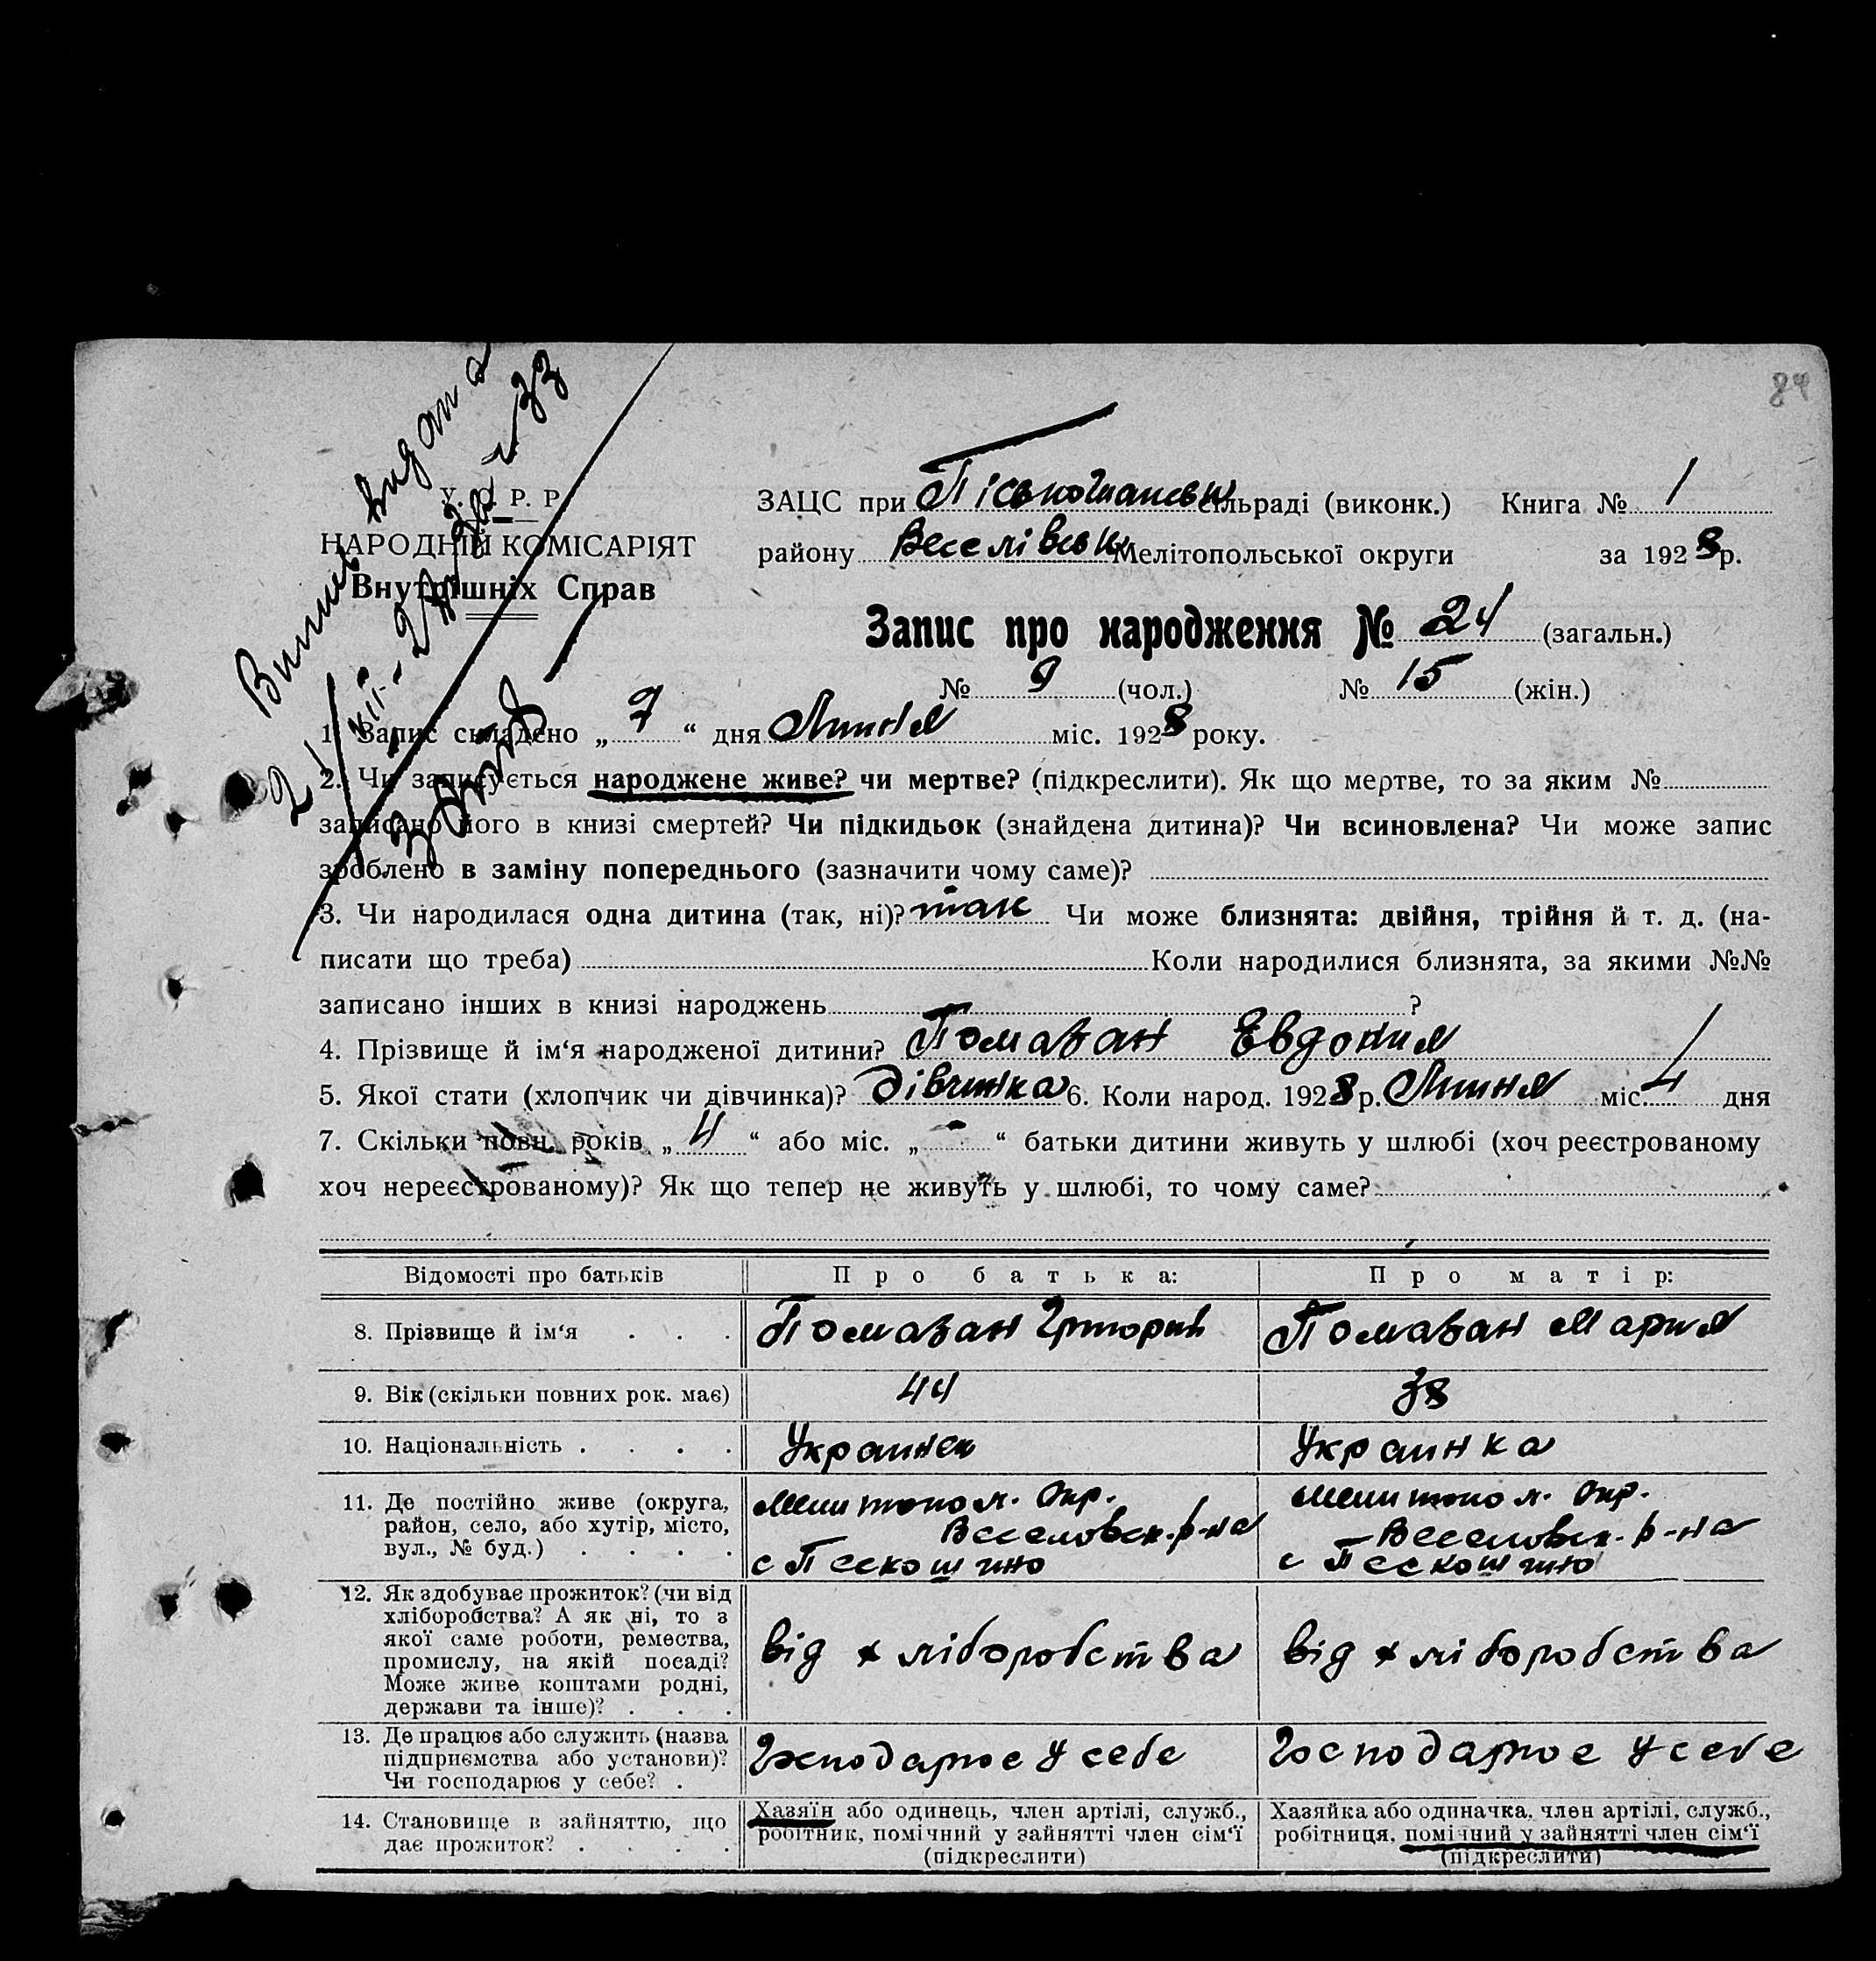 84
Випись видана
У. С. Р. Р.
НАРОДНІЙ КОМІСАРІЯТ
Внутрішніх Справ
ЗАЦС при сільраді (виконк.) Книга № 1
району Веселівськ Мелітопольської округи за 1928 р.
Запис про народження № 24 (загальн.)
№ 9 (чол.) № 15 (жін.)
1. Запис складено „ 7 “ дня Липня міс. 1928 року.
2. Чи записується народжене живе? чи мертве? (підкреслити). Як що мертве, то за яким №
записано його в книзі смертей? Чи підкидьок (знайдена дитина)? Чи всиновлена? Чи може запис
зроблено в заміну попереднього (зазначити чому саме)?
3. Чи народилася одна дитина (так, ні)? так Чи може близнята: двійня, трійня й т. д. (на-
писати що треба) Коли народилися близнята, за якими №№
записано інших в книзі народжень ?
4. Прізвище й ім‘я народженої дитини? Помазан Евдокия
5. Якої стати (хлопчик чи дівчинка)? Дівчинка 6. Коли народ. 1928 р. Липня міс. 4 дня
7. Скільки повн. років „ 4 “ або міс. „ - “ батьки дитини живуть у шлюбі (хоч реєстрованому
хоч нереєстрованому)? Як що тепер не живуть у шлюбі, то чому саме?
Відомості про батьків Про батька: Про матір:
8. Прізвище й ім‘я Помазан Григорий Помазан Мария
9. Вік (скільки повних рок. має) 44 38
10. Національність Украинец Украинка
11. Де постійно живе (округа, район, село, або хутір, місто, вул., № буд.)
Мелитопол. Окр. Веселовск. р-на с Пескошино
Мелитопол. Окр. Веселовск. р-на с Пескошино
12. Як здобуває прожиток? (чи від
хліборобства? А як ні, то з
якої саме роботи, ремества,
промислу, на якій посаді?
Може живе коштами родні,
держави та інше)?
від хліборобства від хліборобства
13. Де працює або служить (назва
підприємства або установи)?
Чи господарює у себе?
Господарює у себе Господарює у себе
14. Становище в зайняттю, що
дає прожиток?
Хазяїн або одинець, член артілі, служб.,
робітник, помічний у зайнятті член сім‘ї
(підкреслити)
Хазяйка або одиначка, член артілі, служб.,
робітниця, помічний у зайнятті член сім‘ї
(підкреслити)